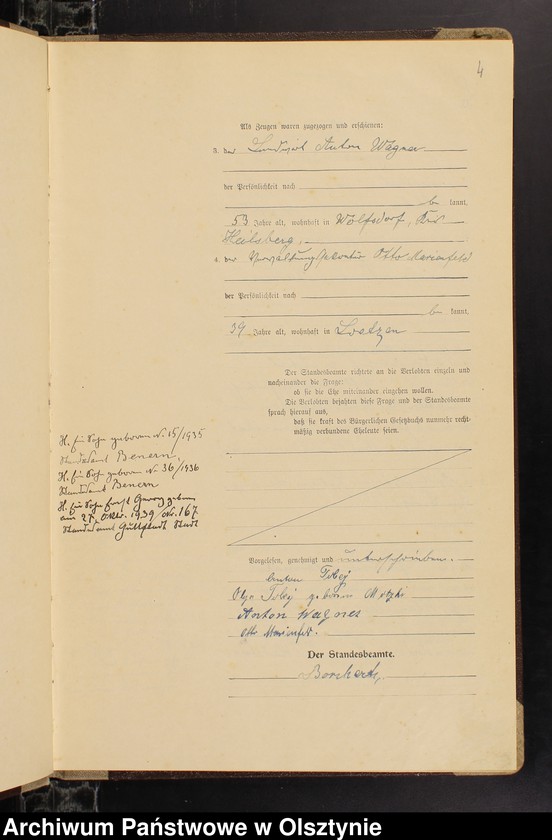 4
Als Zeugen waren zugezogen und erschienen:
3. der Landwirt Anton Wagner
der Persönlichkeit nach
be kannt,
53 Jahre alt, wohnhaft in Wolfsdorf, Kreis
Heilsberg,
4. der Otto Marienfeld
der Persönlichkeit nach
be kannt,
39 Jahre alt, wohnhaft in Loetzen
Der Standesbeamte richtete an die Verlobten einzeln und
nacheinander die Frage:
ob sie die Ehe miteinander eingehen wollen.
Die Verlobten bejahten diese Frage und der Standesbeamte
sprach hierauf aus,
daß sie kraft des Bürgerlichen Gesetzbuchs nunmehr recht-
mäßig verbundene Eheleute seien.
H. ein Sohn geboren Nr. 15/1935
Standesamt Benern.
H. ein Sohn geboren Nr. 36/1936
Standesamt Benern
H. ein Sohn Ernst Georg geboren
am 27. Oktr. 1939/Nr. 167
Standesamt Guttstadt Stadt
Vorgelesen, genehmigt und unterschrieben.
Anton
Olga geborene
Anton Wagner
Otto Marienfeld.
Der Standesbeamte.
Borchert,
Archiwum Państwowe w Olsztynie